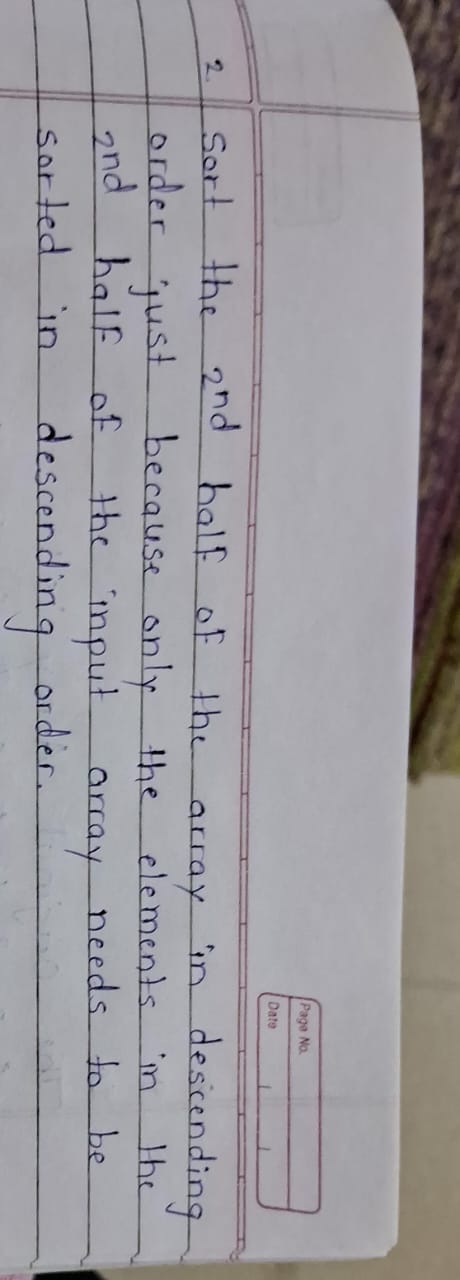 Page No.
Date
2. Sort the 2nd half of the array in descending
order just because only the elements in the
2nd half of the input array needs to be
sorted in descending order.